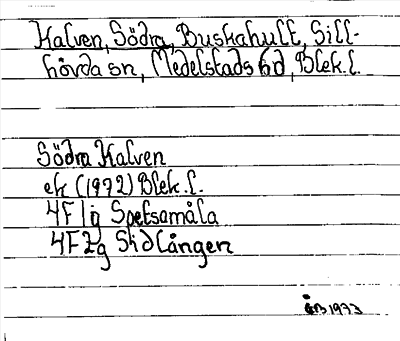 Kalven, Södra, Buskahult, Sill-
hövda sn, Medelstads hd, Blek.l.
Södra Kalven
ek (1972) Blek.l.
4F 1g Spetsamåla
4F 2g Sidlången
1973